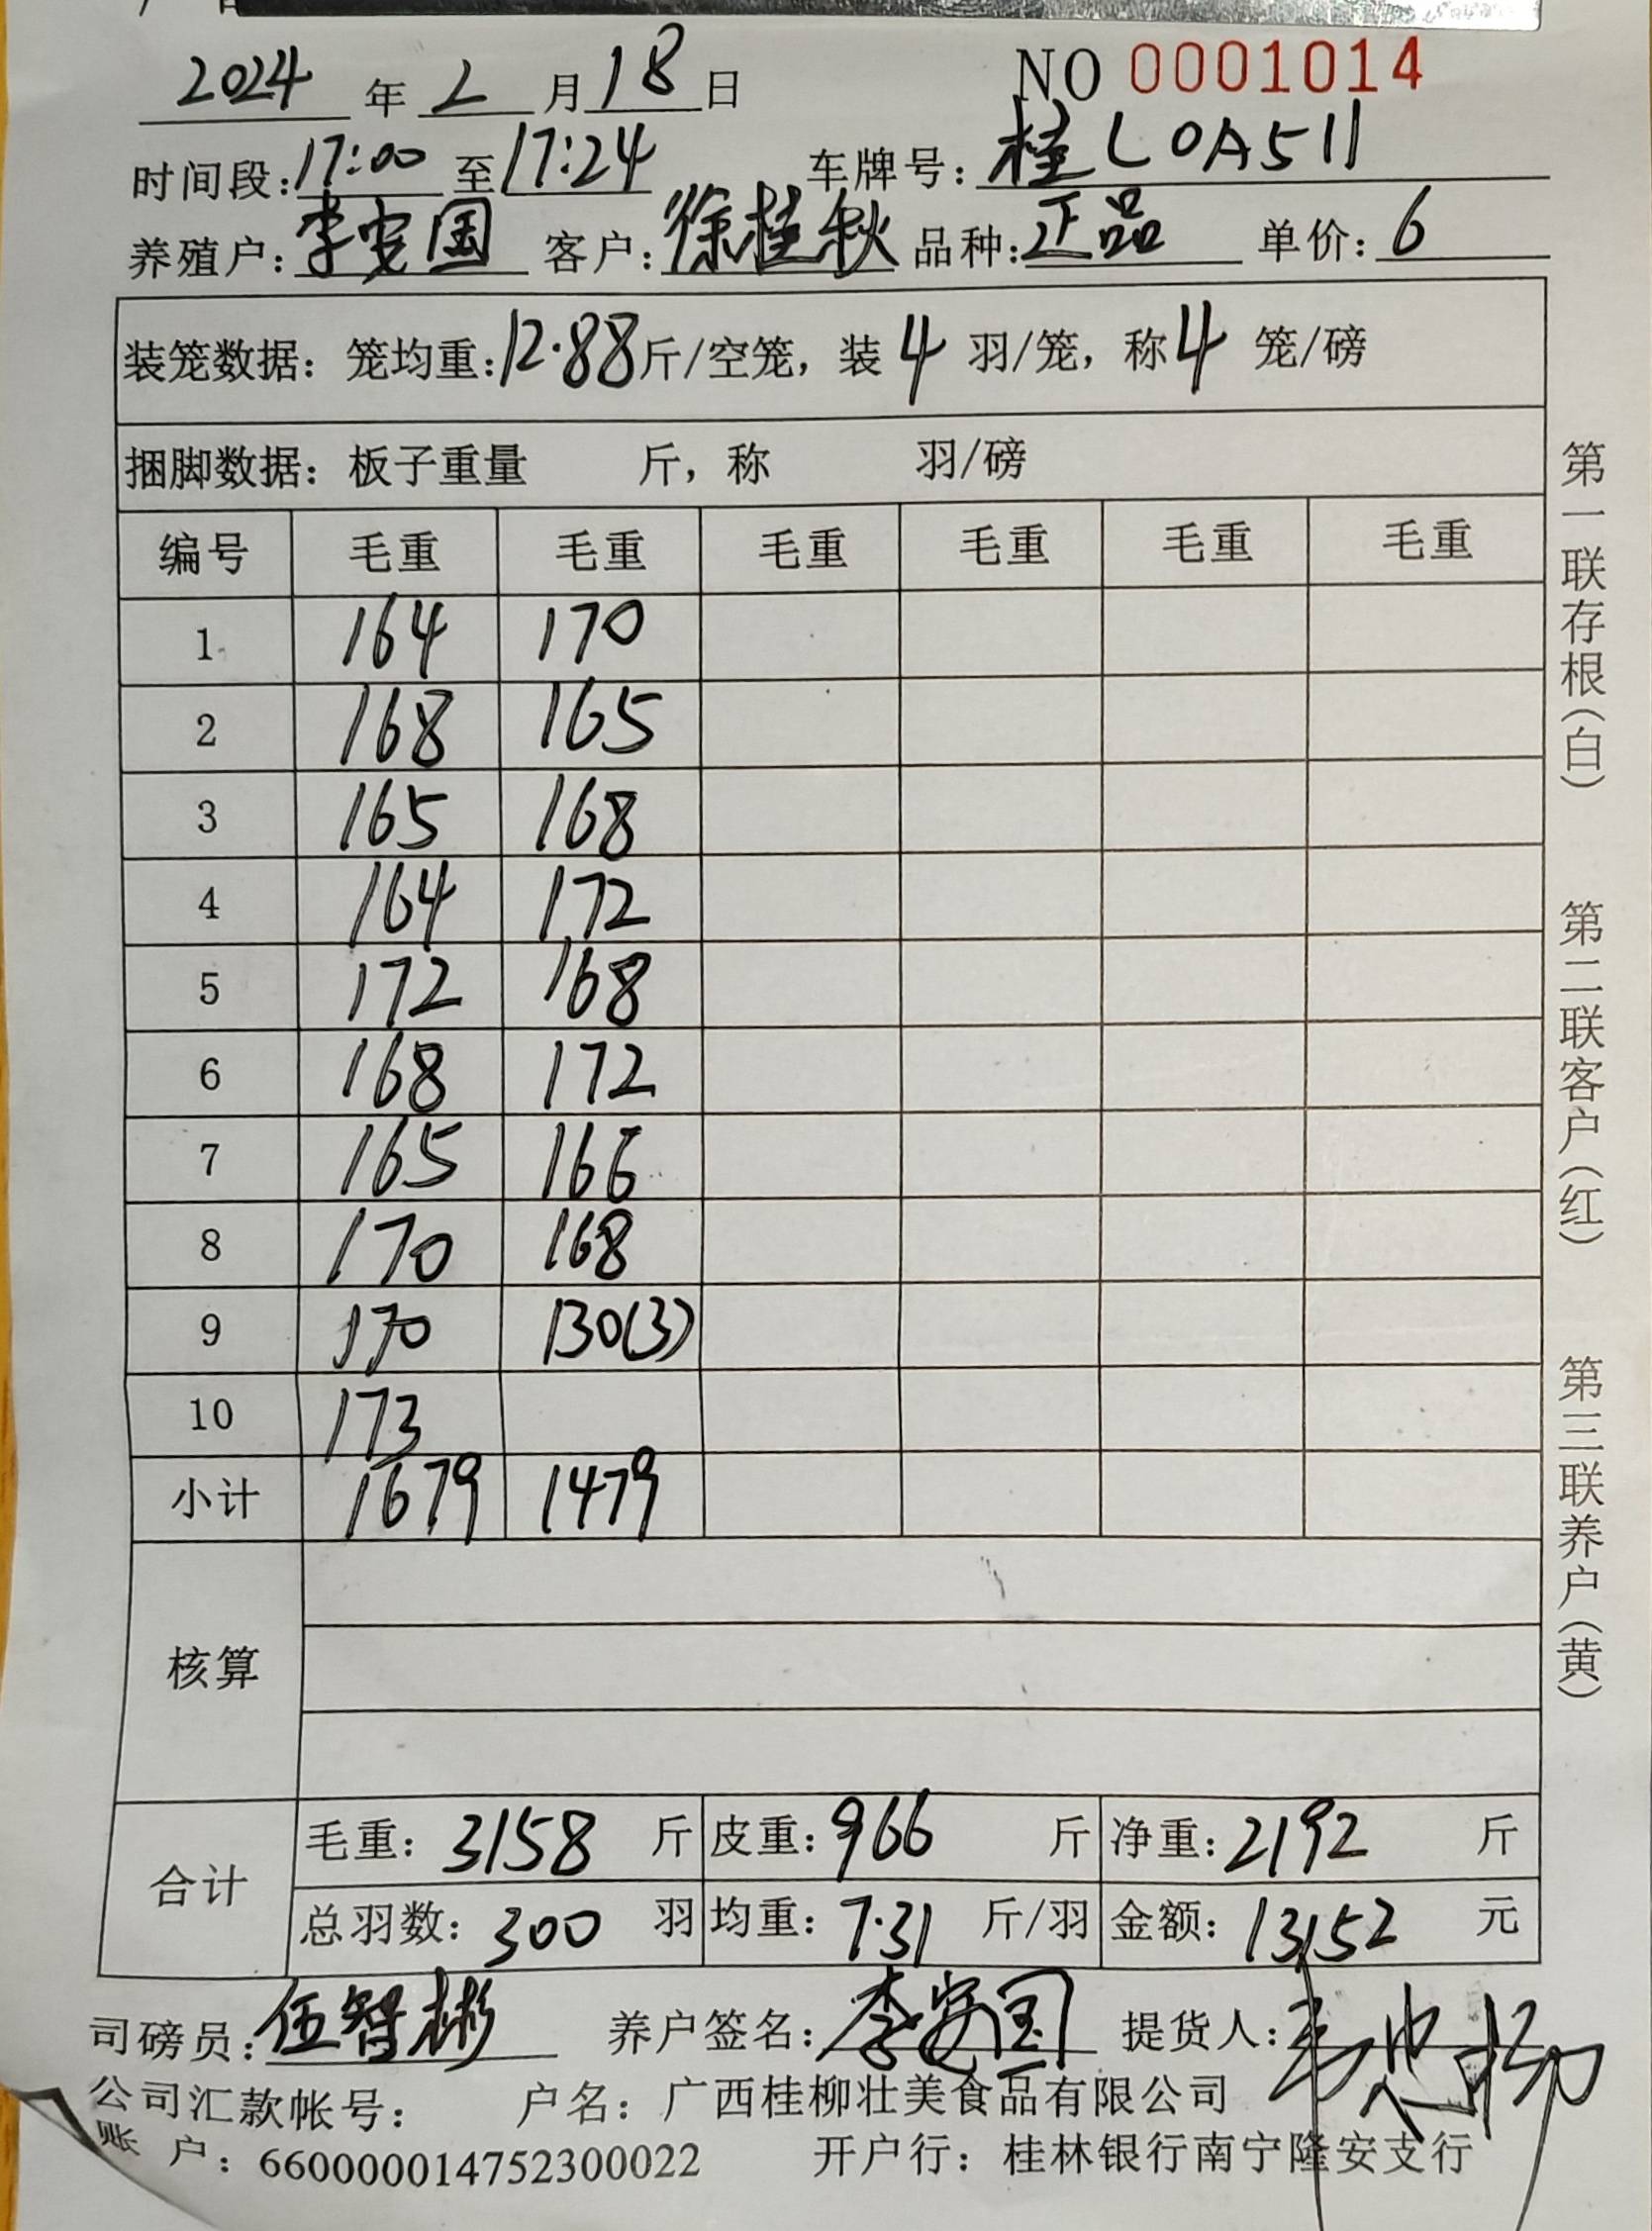 2024年2月18日 NO 0001014
时间段:17:00至17:24 车牌号:桂L0A511
养殖户:李安国 客户:徐桂秋 品种:正品 单价:6
装笼数据：笼均重:12.88斤/空笼，装4羽/笼，称4笼/磅
捆脚数据：板子重量 斤，称 羽/磅
编号 毛重 毛重 毛重 毛重 毛重 毛重
1 164 170
2 168 165
3 165 168
4 164 172
5 172 168
6 168 172
7 165 166
8 170 168
9 170 130(3)
10 173
小计 1679 1479
核算
合计 毛重：3158斤 皮重：966斤 净重：2192斤
总羽数：300羽 均重：7.31斤/羽 金额：13152元
司磅员:伍智彬 养户签名:李安国 提货人:
公司汇款帐号： 户名：广西桂柳壮美食品有限公司
账 户：660000014752300022 开户行：桂林银行南宁隆安支行
第一联存根（白）
第二联客户（红）
第三联养户（黄）